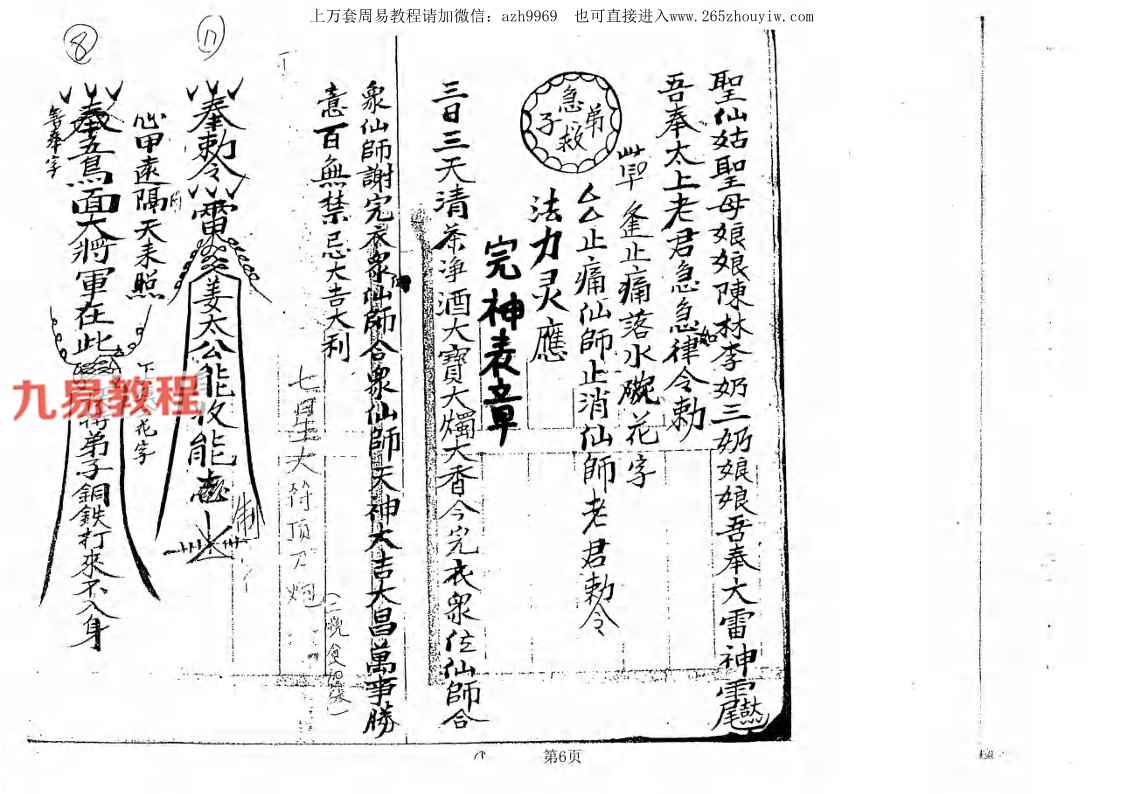 上万套周易教程请加微信：azh9969　也可直接进入www.265zhouyiw.com
聖仙姑聖母娘娘陳林李奶三奶娘娘吾奉大雷神
吾奉太上老君急急如律令勅
急救
弟子
逢止痛落水碗花字
止痛仙師止消仙師老君勅令
法力灵應
完神表章
三日三天清茶净酒大寶大燭大香今完衣衆位仙師合
衆仙師謝完衣衆仙師合衆仙師天神大吉大昌萬事勝
意百無禁忌大吉大利
七星大符頂刀炮
11
奉勅令
雷
姜太公能收能
心甲遠隔天未照
8
奉五鳥面大將軍在此
弟子銅鉄打來不入身
九易教程
第6页